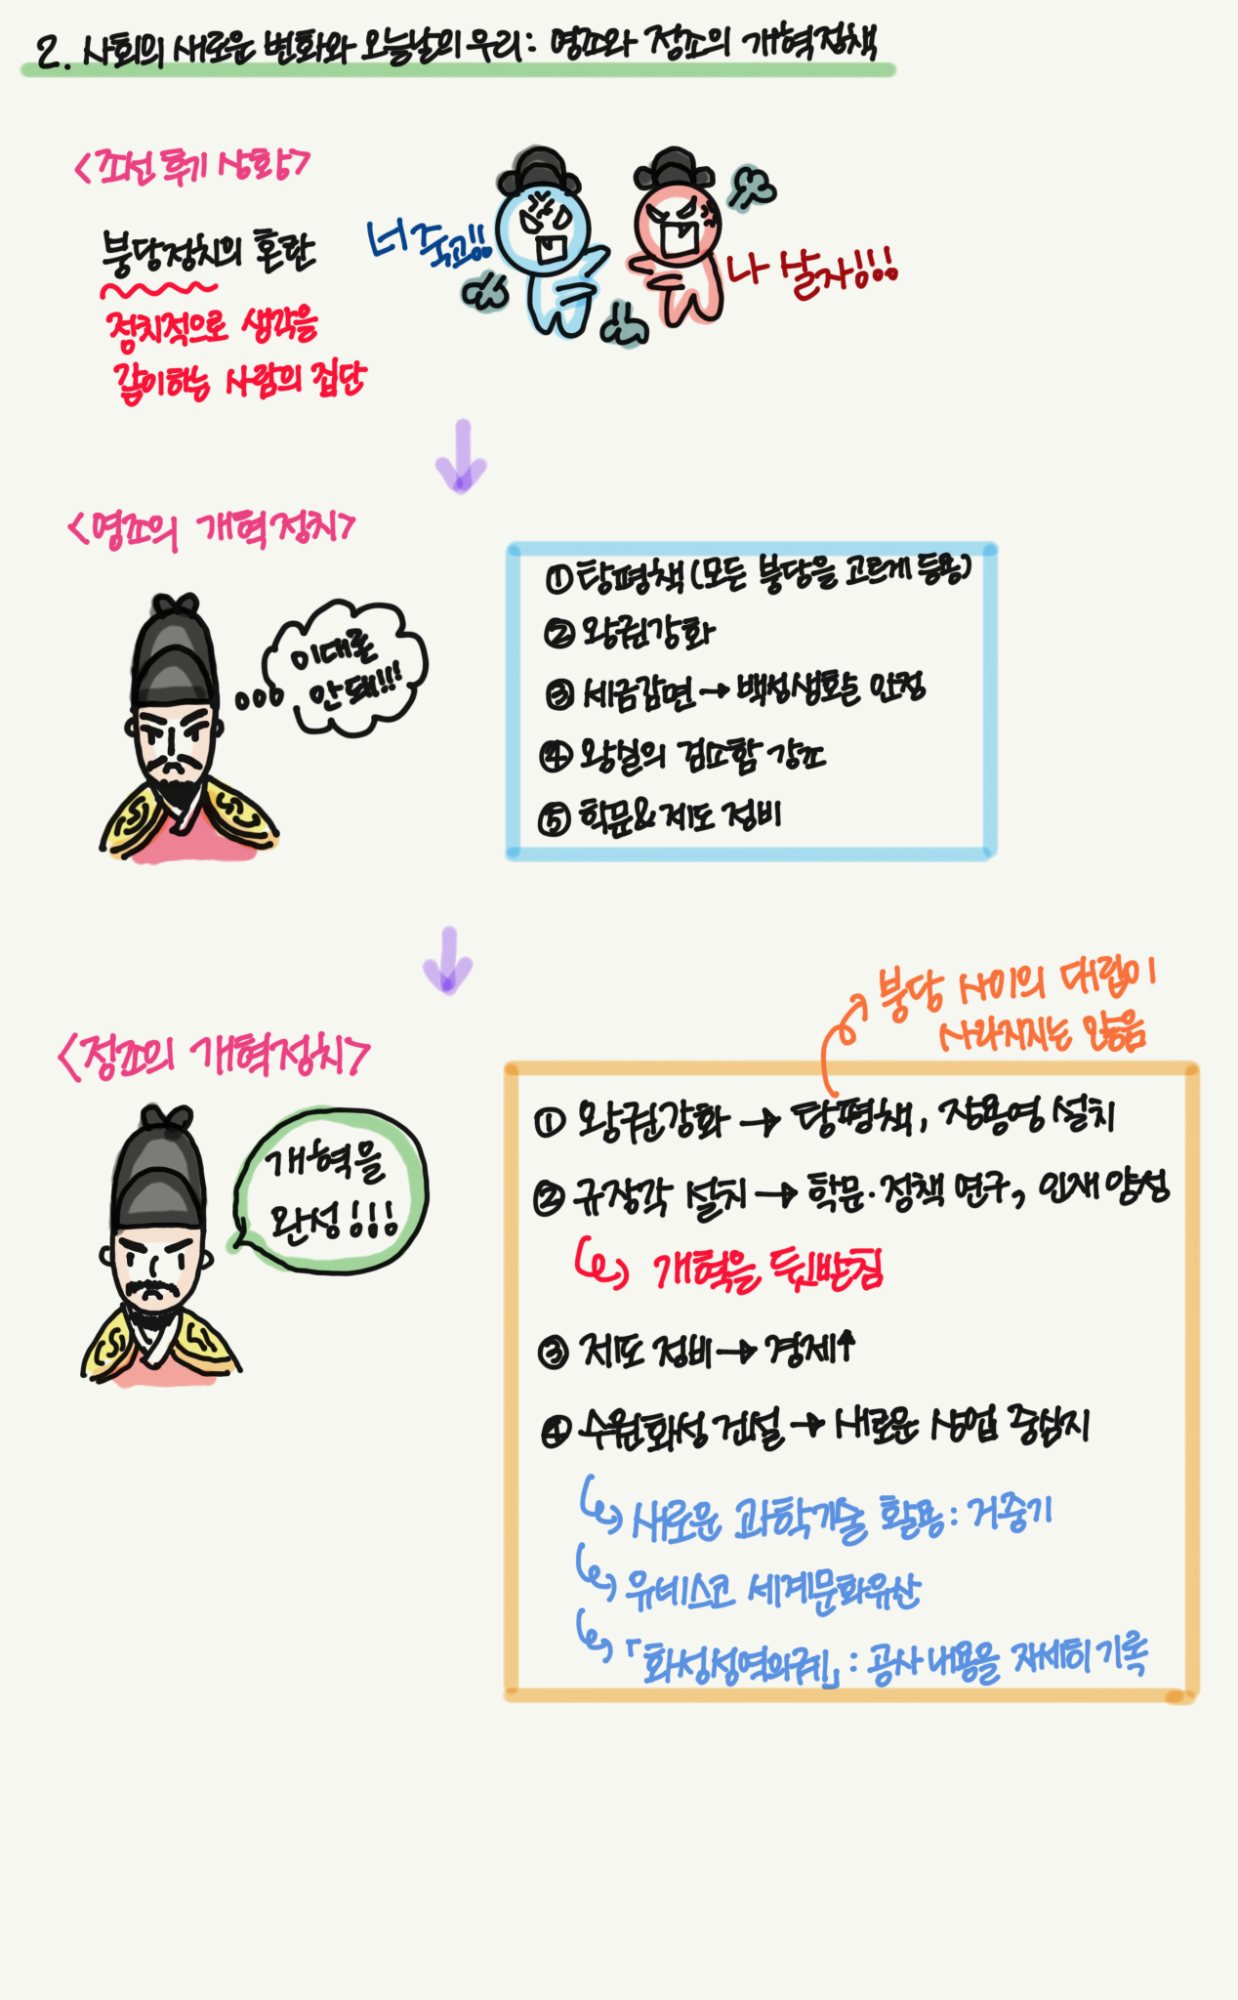 2. 사회의 새로운 변화와 오늘날의 우리: 영조와 정조의 개혁정책
<조선 후기 상황>
붕당정치의 혼란
정치적으로 생각을
같이하는 사람의 집단
너 죽고!!
나 살자!!!
<영조의 개혁정치>
이대론
안돼!!!
① 탕평책 (모든 붕당을 고르게 등용)
② 왕권강화
③ 세금감면 → 백성생활 안정
④ 왕실의 검소함 강조
⑤ 학문&제도 정비
<정조의 개혁정치>
개혁을
완성!!!
붕당 사이의 대립이
사라지지는 않았음
① 왕권강화 → 탕평책, 장용영 설치
② 규장각 설치 → 학문·정책 연구, 인재 양성
개혁을 뒷받침
③ 제도 정비 → 경제↑
④ 수원화성 건설 → 새로운 상업 중심지
새로운 과학기술 활용: 거중기
유네스코 세계문화유산
「화성성역의궤」: 공사 내용을 자세히 기록